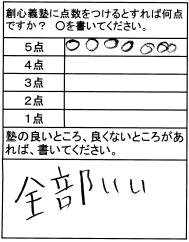 創心義塾に点数をつけるとすれば何点
ですか？ ○を書いてください。
5点 ○○○○○○○
4点
3点
2点
1点
塾の良いところ、良くないところがあ
れば、書いてください。
全部いい